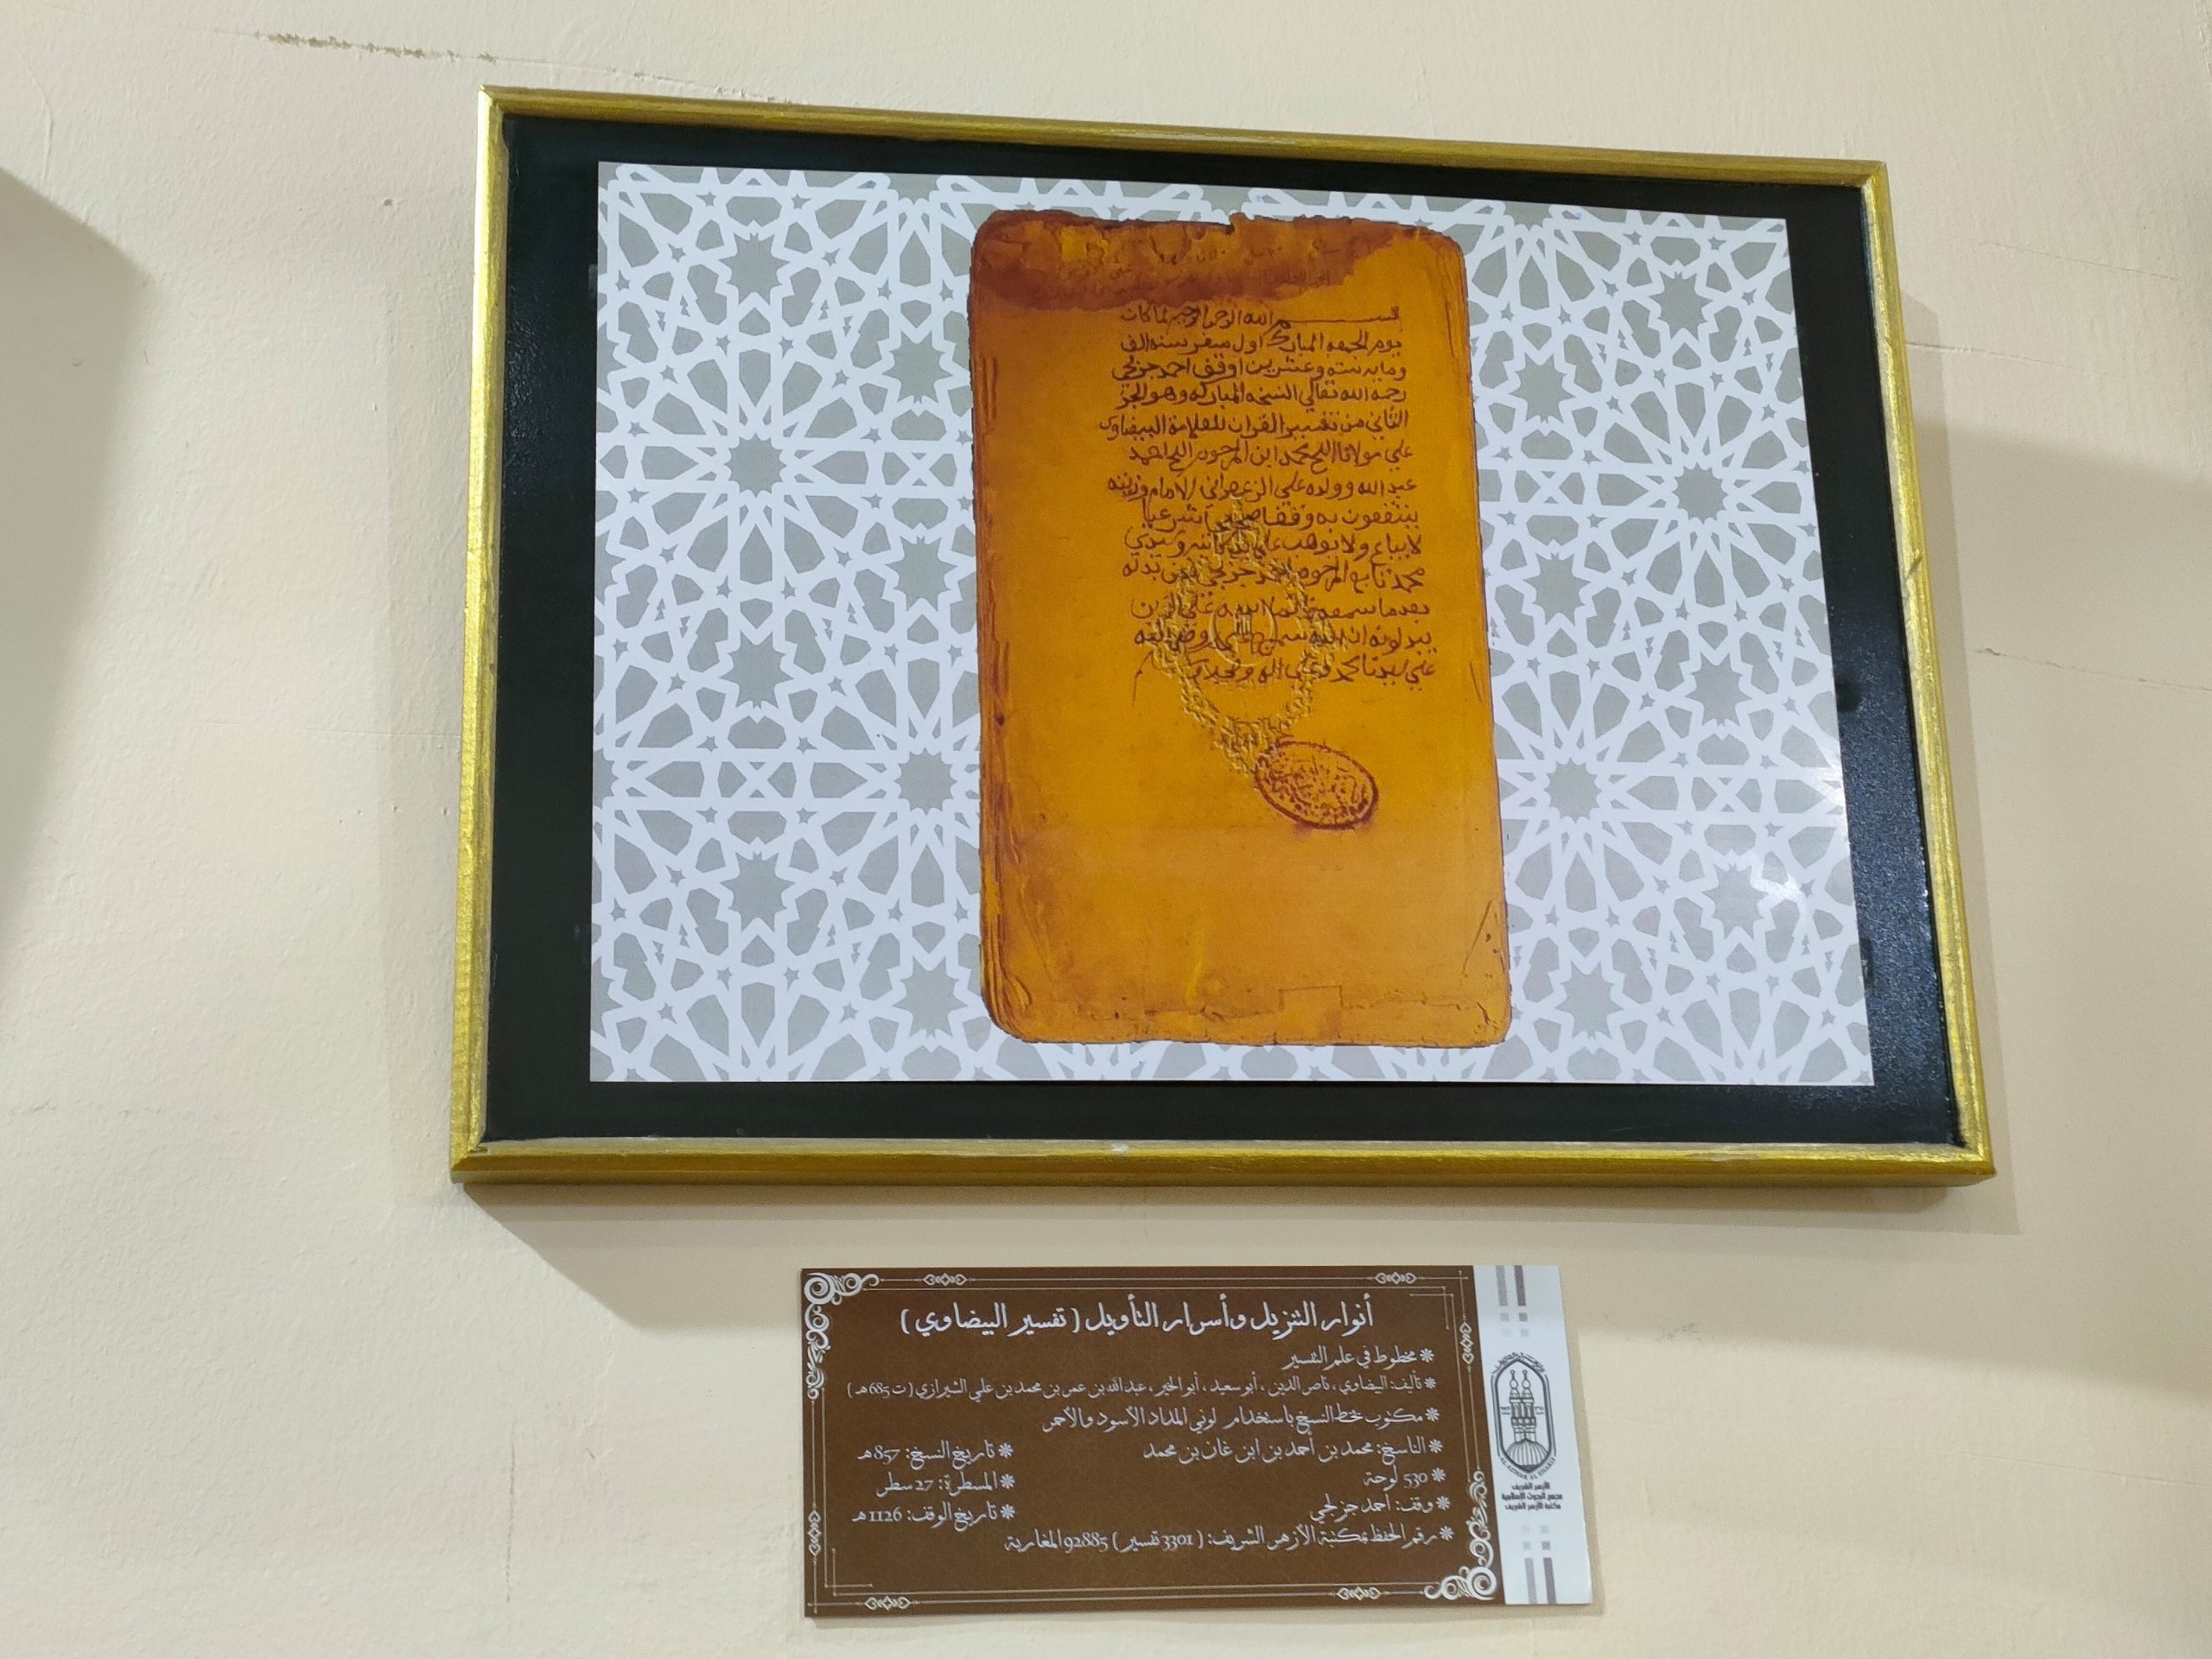 بسم الله الرحمن الرحيم لما كان
يوم الجمعه المبارك اول صفر سنه الف
ومايه سته وعشرين اوقف احمد جزلجي
رحمه الله تعالي النسخه المباركه وهو الجز
الثاني من تفسير القران للعلامة البيضاوي
علي مولانا الحج محمد ابن المرحوم الحج احمد
عبد الله وولده علي الزعفراني الامام وذريته
ينتفعون به وقفا صحيحا شرعيا
لا يباع ولا يوهب علي يد وسيدي
محمد تابع المرحوم احمد جزلجي فمن بدله
بعد ما سمعه فانما اثمه علي الذين
يبدلونه ان الله سميع عليم وصلي الله
علي سيدنا محمد وعلي اله وصحبه
أنوار التنزيل وأسرار التأويل ( تفسير البيضاوي )
❋ مخطوط في علم التفسير
❋ تأليف: البيضاوي، ناصر الدين، أبو سعيد، أبو الخير، عبد الله بن عمر بن محمد بن علي الشيرازي ( ت 685هـ )
❋ مكتوب بخط النسخ باستخدام لوني المداد الأسود والأحمر
❋ الناسخ: محمد بن أحمد بن ابن غان بن محمد ❋ تاريخ النسخ: 857هـ
❋ 530 لوحة ❋ المسطرة: 27 سطر
❋ وقف: أحمد جزلجي ❋ تاريخ الوقف: 1126هـ
❋ رقم الحفظ بمكتبة الأزهر الشريف: ( 3301 تفسير ) 92885 المغاربة
AL-AZHAR AL-SHARIF
الأزهر الشريف
مجمع البحوث الإسلامية
مكتبة الأزهر الشريف